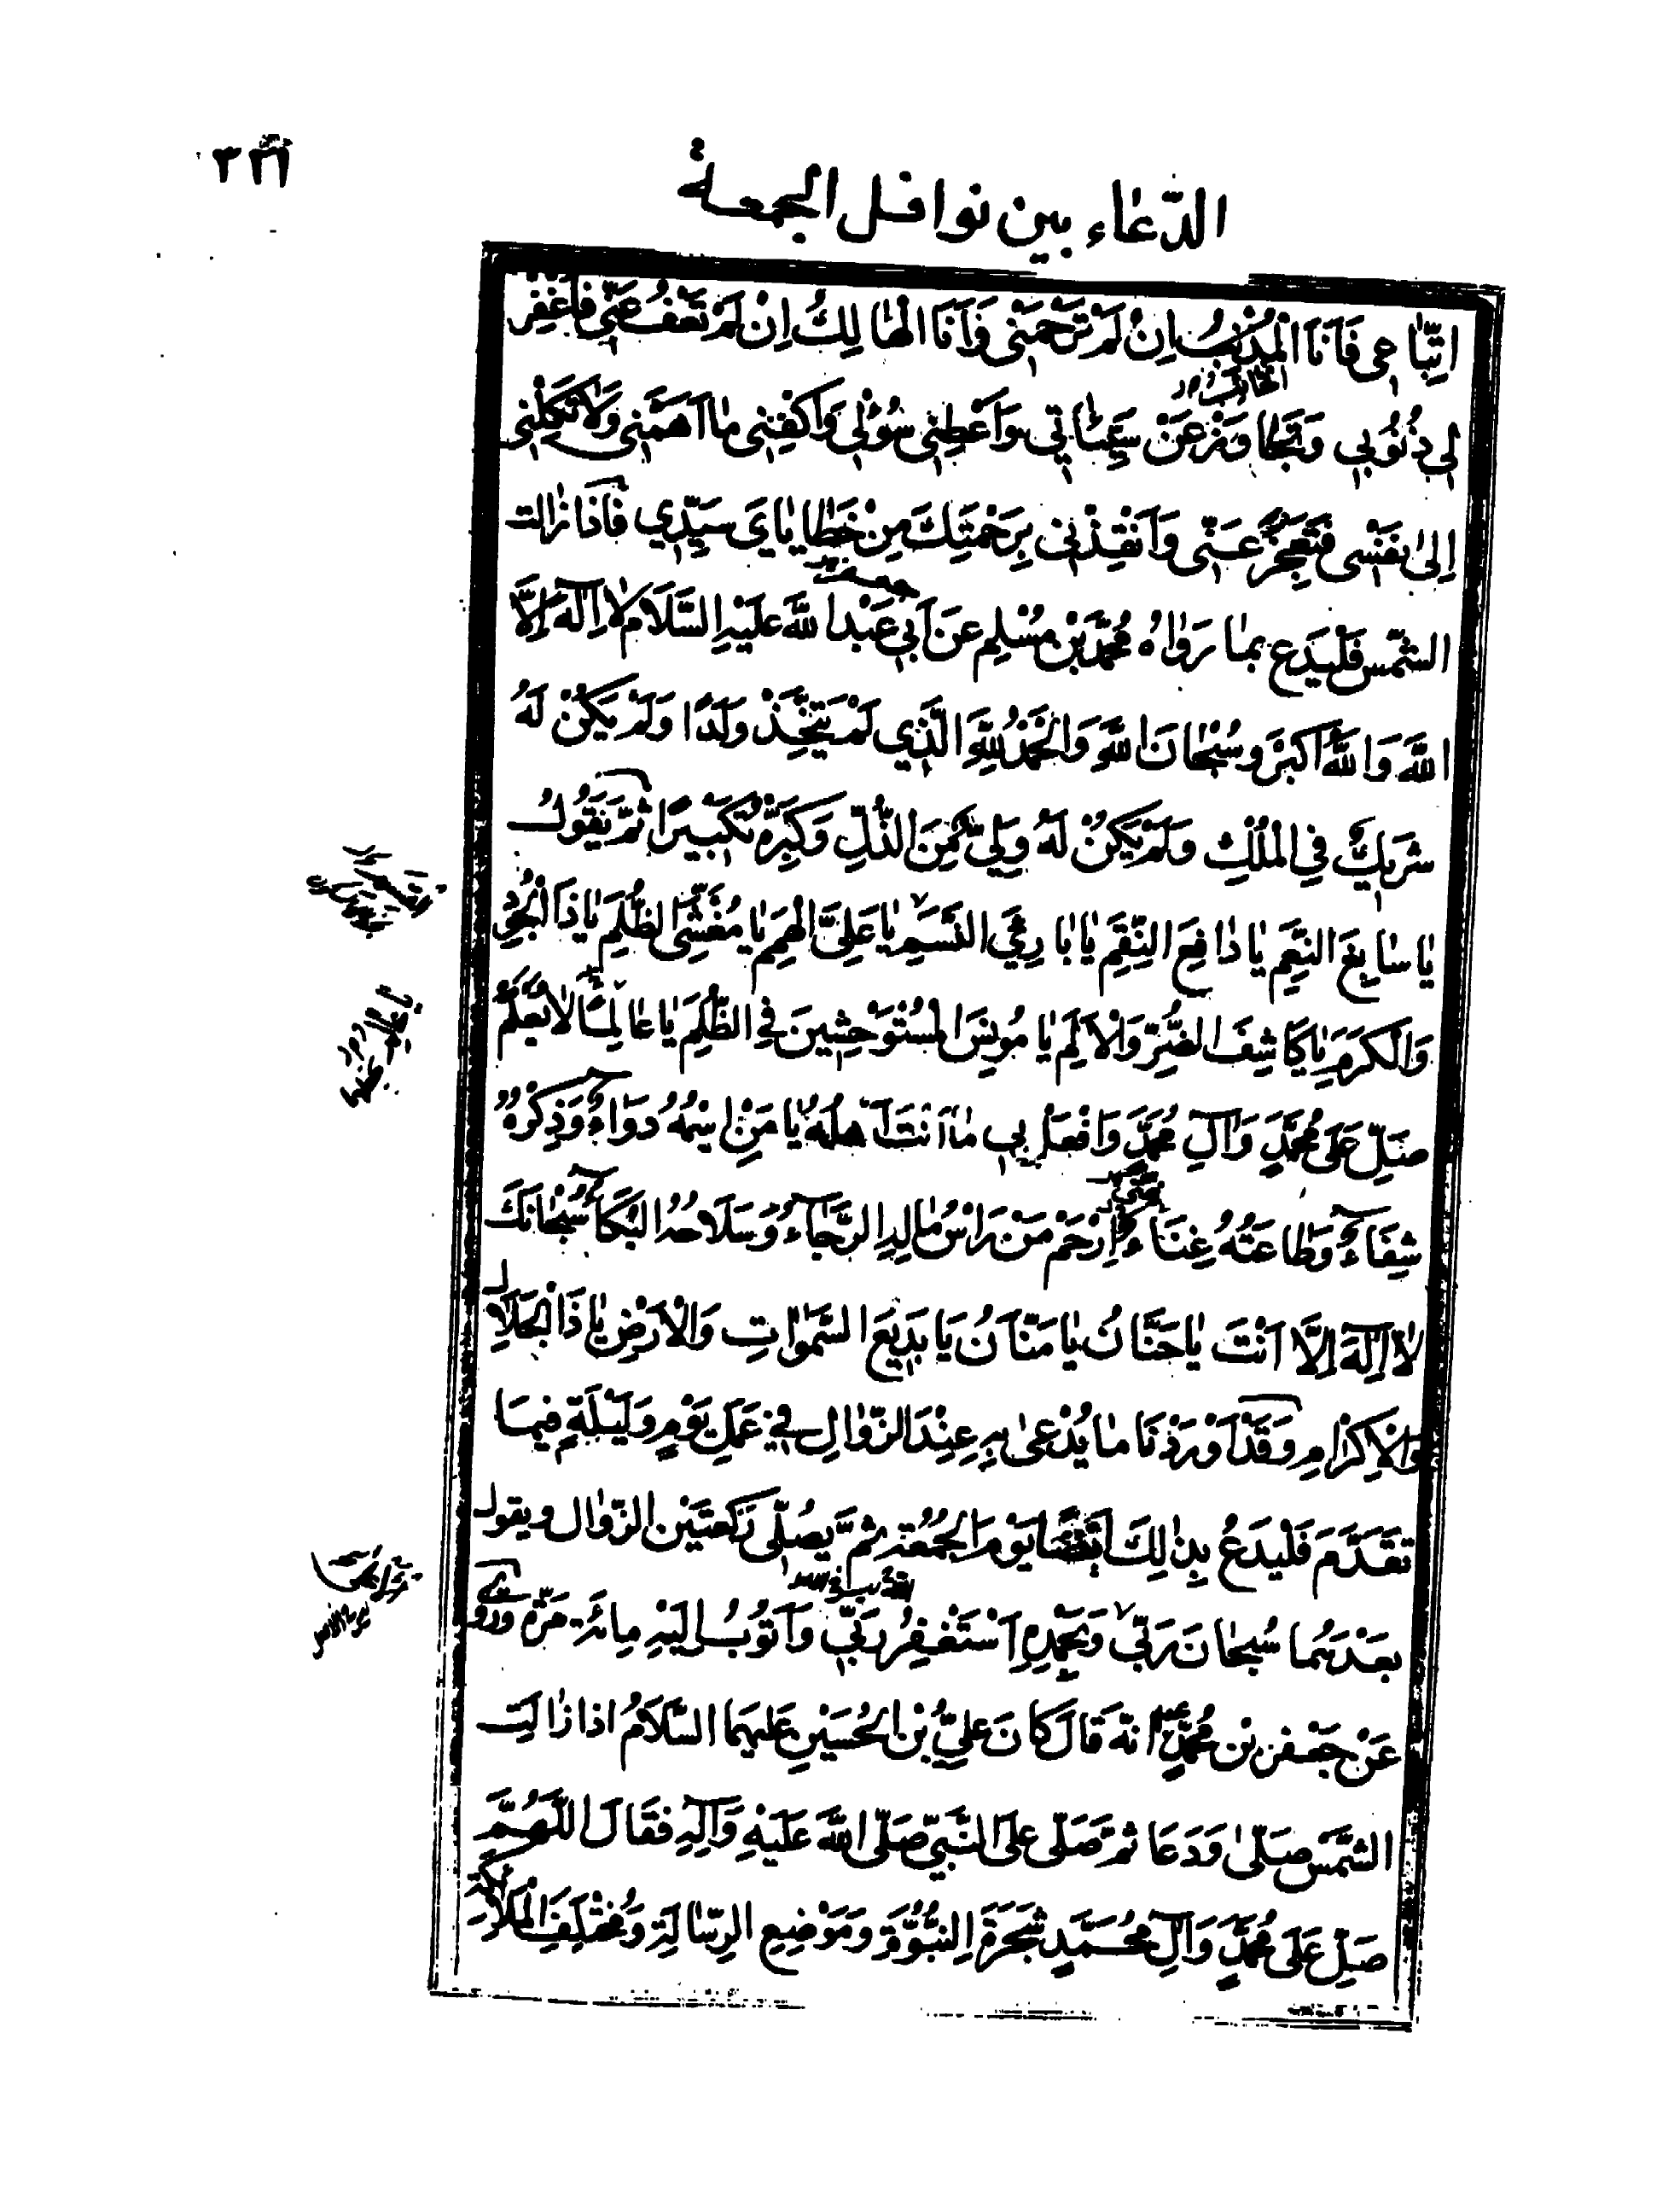 ٣٢٦
الدّعاء بين نوافل الجمعة
اتِّبَاعِي فَاَنَا الْمُذْنِبُ اِنْ لَمْ تَرْحَمْنِي وَاَنَا الْهَالِكُ اِنْ لَمْ تَعْفُ عَنِّي فَاغْفِرْ
لِي ذُنُوبِي وَتَجَاوَزْ عَنْ سَيِّئَاتِي وَاَعْطِنِي سُؤْلِي وَاكْفِنِي مَا اَهَمَّنِي وَلَا تَكِلْنِي
اِلىٰ نَفْسِي فَتَعْجِزَ عَنِّي وَاَنْقِذْنِي بِرَحْمَتِكَ مِنْ خَطَايَايَ سَيِّدِي فَاِذَا زَالَت
الشَّمْس فَلْيَدَعِ بِمَا رَوَاهُ مُحَمَّدُ بْن مُسْلِم عَن اَبِي عَبْدِ اللهِ عَلَيْهِ السَّلَام لَا اِلَهَ اِلَّا
اللهُ وَاللهُ اَكْبَرُ وَسُبْحَانَ اللهِ وَالْحَمْدُ لِلهِ الَّذِي لَمْ يَتَّخِذْ وَلَدًا وَلَمْ يَكُنْ لَهُ
شَرِيكٌ فِي الْمُلْكِ وَلَمْ يَكُنْ لَهُ وَلِيٌّ مِنَ الذُّلِّ وَكَبِّرْهُ تَكْبِيرًا ثُمَّ يَقُولُ
يَا سَابِغَ النِّعَمِ يَا دَافِعَ النِّقَمِ يَا بَارِئَ النَّسَمِ يَا عَلِيَّ الْهِمَمِ يَا مُغَشِّيَ الظُّلَمِ يَا ذَا الْجُودِ
وَالْكَرَمِ يَا كَاشِفَ الضُّرِّ وَالْاَلَمِ يَا مُونِسَ الْمُسْتَوْحِشِينَ فِي الظُّلَمِ يَا عَالِمًا لَا يُعَلَّمُ
صَلِّ عَلَى مُحَمَّدٍ وَآلِ مُحَمَّدٍ وَافْعَلْ بِي مَا اَنْتَ اَهْلُهُ يَا مَنِ اسْمُهُ دَوَاءٌ وَذِكْرُهُ
شِفَاءٌ وَطَاعَتُهُ غِنَاءٌ اِرْحَمْ مَنْ رَاْسُ مَالِهِ الرَّجَاءُ وَسِلَاحُهُ الْبُكَاءُ سُبْحَانَكَ
لَا اِلَهَ اِلَّا اَنْتَ يَا حَنَّانُ يَا مَنَّانُ يَا بَدِيعَ السَّمَوَاتِ وَالْاَرْضِ يَا ذَا الْجَلَالِ
وَالْاِكْرَامِ وَقَدْ اَوْرَدْنَا مَا يُدْعىٰ بِهِ عِنْدَ الزَّوَالِ فِي عَمَلِ يَوْمٍ وَلَيْلَةٍ فِيمَا
تَقَدَّمَ فَلْيَدَعُ بِذَلِكَ اَيْضًا يَوْمَ الْجُمُعَةِ ثُمَّ يُصَلِّي رَكْعَتَيْنِ الزَّوَال وَيَقُول
بَعْدَهُمَا سُبْحَانَ رَبِّي وَبِحَمْدِهِ اَسْتَغْفِرُ رَبِّي وَاَتُوبُ اِلَيْهِ مِائَةَ مَرَّة وَرُوِيَ
عَنْ جَعْفَرِ بْنِ مُحَمَّدٍ اَنَّهُ قَالَ كَانَ عَلِيُّ بْنُ الْحُسَيْنِ عَلَيْهِمَا السَّلَامُ اِذَا زَالَتِ
الشَّمْسُ صَلَّىٰ وَدَعَا ثُمَّ صَلَّى عَلَى النَّبِيِّ صَلَّى اللهُ عَلَيْهِ وَآلِهِ فَقَالَ اللَّهُمَّ
صَلِّ عَلَى مُحَمَّدٍ وَآلِ مُحَمَّدٍ شَجَرَةِ النُّبُوَّةِ وَمَوْضِعِ الرِّسَالَةِ وَمُخْتَلَفِ الْمَلَائِكَةِ